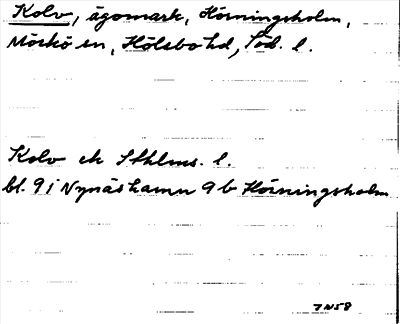 Kolv, ägomark, Hörningsholm,
Mörkö sn, Hölebo hd, Söd. l.
Kolv ek Sthlms. l.
bl. 9 i Nynäshamn 9 b Hörningsholm
7 N58